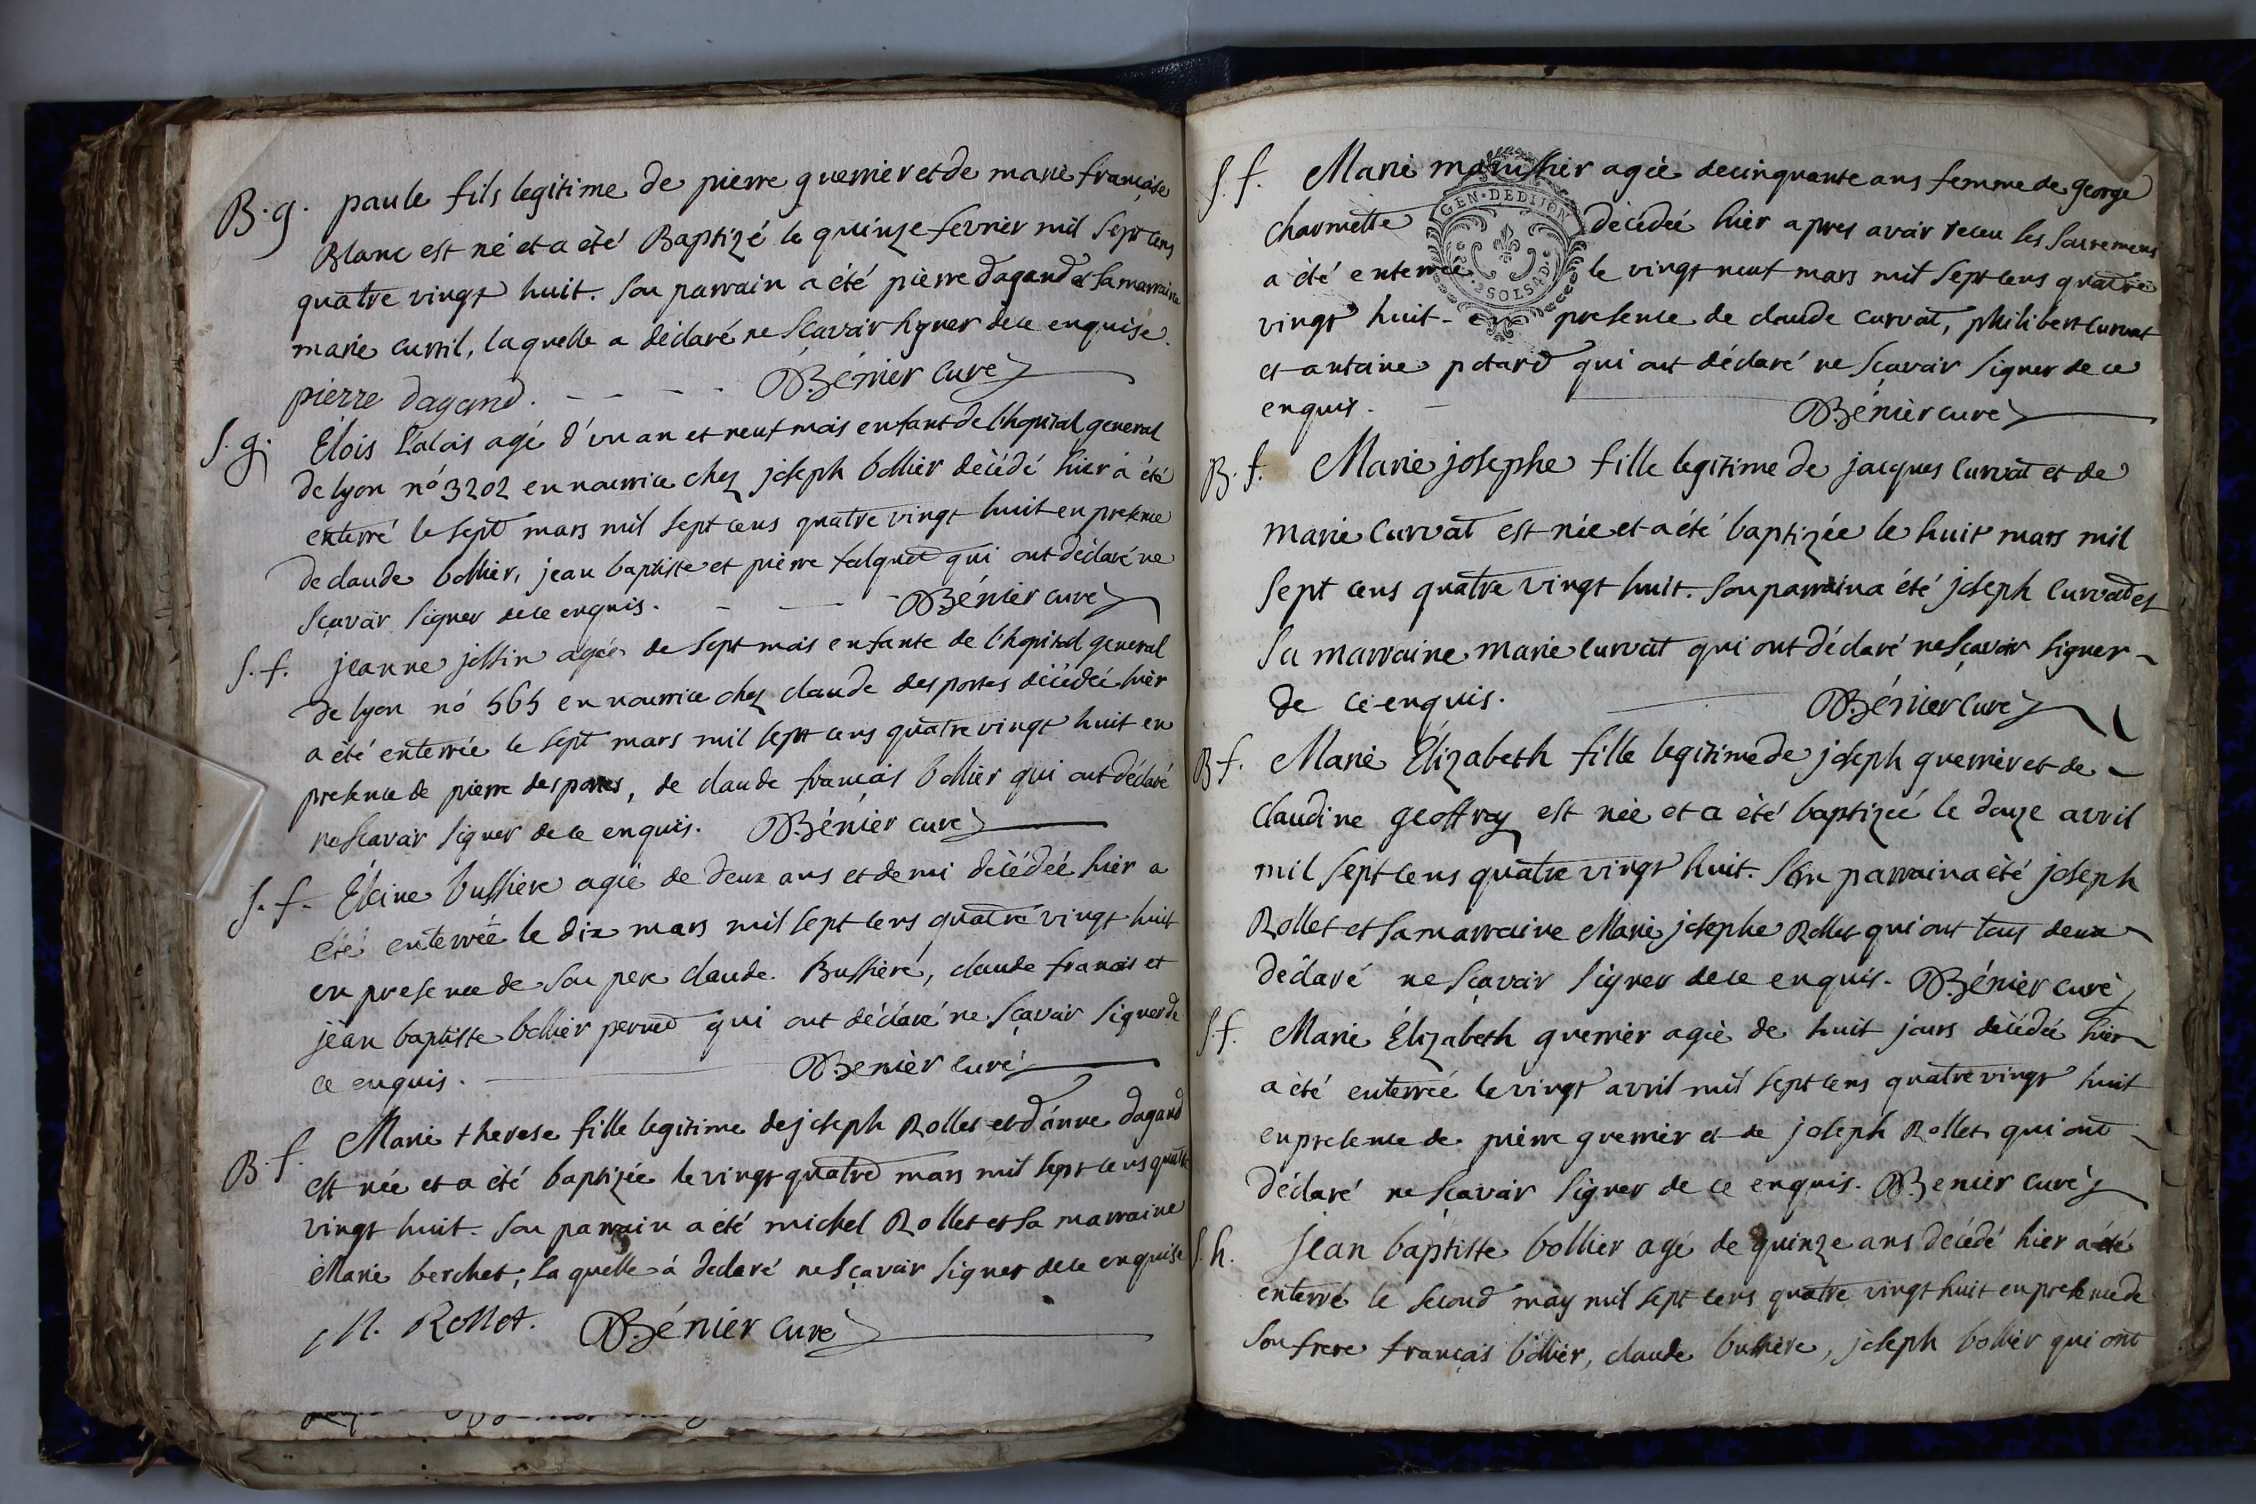 B. g. paule fils legitime de pierre guerrier et de marie française
Blanc est né et a été Baptizé le quinze fevrier mil Sept cens
quatre vingt huit. Son parrain a été pierre dagand et Sa marraine
marie curtil, laquelle a déclaré ne Sçavoir Signer de ce enquise.
pierre dagand. Bénier curé
S. g. Élois Lalois agé d'un an et neuf mois enfant de l'hopital general
de lyon nó 3202 en nourrice chez joseph bollier décédé hier à été
enterré le sept mars mil sept cens quatre vingt huit en presence
de claude bollier, jean baptiste et pierre falquet qui ont déclaré ne
Sçavoir Signer de ce enquis. - Bénier curé
S. f. jeanne jossin agée de sept mois enfante de l'hopital general
de lyon nó 565 en nourrice chez claude desportes décédée hier
a été enterrée le sept mars mil sept cens quatre vingt huit en
presence de pierre desportes, de claude françois bollier qui ont déclaré
ne Scavoir Signer de ce enquis. Bénier curé
S. f. Éleine bussiere agée de deux ans et demi décédée hier a
été enterrée le dix mars mil sept cens quatre vingt huit
en presence de Son pere claude Bussiere, claude francois et
jean baptiste bollier perned qui ont déclaré ne Sçavoir Signer de
ce enquis. Benier curé
B. f. Marie therese fille legitime de joseph Rollet et d'anne dagand
est née et a été baptizée le vingt quatre mars mil sept cens quatre
vingt huit. Son parrain a été michel Rollet et Sa marraine
Marie berchet, Laquelle à declaré ne Sçavoir Signer de ce enquise
M. Rollet. Bénier curé
S. f. Marie agée de cinquante ans femme de george
charmette décédée hier apres avoir receu les Sacremens
a été enterrée le vingt neuf mars mil sept cens quatre
GEN · DE DIJON
2 SOLS A D. C
vingt huit - en presence de claude curvat, philibert curvat
et antoine potard qui ont déclaré ne Sçavoir Signer de ce
enquis. Bénier curé
B. f. Marie josephe fille legitime de jacques Curvat et de
marie Curvat est née et a été baptizée le huit mars mil
Sept cens quatre vingt huit. Son parrain a été joseph Curvat et
Sa marraine marie curvat qui ont déclaré ne Sçavoir Signer
de ce enquis. Bénier Curé
B. f. Marie Élizabeth fille legitime de joseph guerrier et de
Claudine geoffray est née et a été baptizée le douze avril
mil Sept cens quatre vingt huit. Son parrain a été joseph
Rollet et Sa marraine Marie josephe Rollet qui ont tous deux
déclaré ne Sçavoir Signer de ce enquis. Bénier curé
S. f. Marie Élizabeth guerrier agée de huit jours décédée hier
a été enterrée le vingt avril mil sept cens quatre vingt huit
en presence de pierre guerrier et de joseph Rollet qui ont
déclaré ne Sçavoir Signer de ce enquis. Benier curé
S. h. Jean baptiste bollier agé de quinze ans décédé hier a été
enterré le Second may mil sept cens quatre vingt huit en presence de
Son frere françois bollier, claude bussiere, joseph bollier qui ont